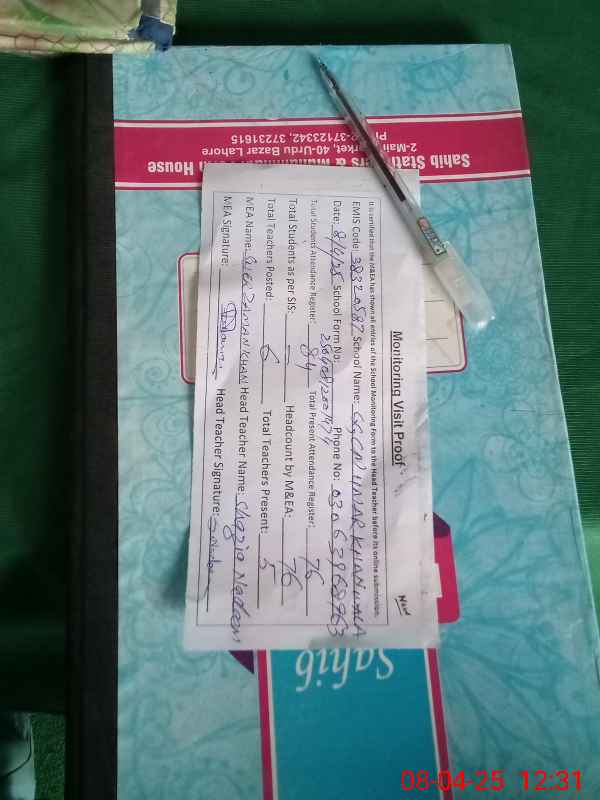 Sahib Stationers &
House
2-Main Market, 40-Urdu Bazar Lahore
37123342, 37231615
Monitoring Visit Proof
New
It is certified that the M&EA has shown all entries of the School Monitoring Form to the Head Teacher before its online submission.
EMIS Code: 38320587 School Name: UMAR KHANWALA
Date: 8/4/25 School Form No: Phone No:
Total Students Attendance Register: 84 Total Present Attendance Register: 76
Total Students as per SIS: — Headcount by M&EA: 76
Total Teachers Posted: 6 Total Teachers Present: 5
MEA Name: ZAMAN KHAN Head Teacher Name: Shazia Nadeem
MEA Signature: Head Teacher Signature:
Sahib
08-04-25 12:31